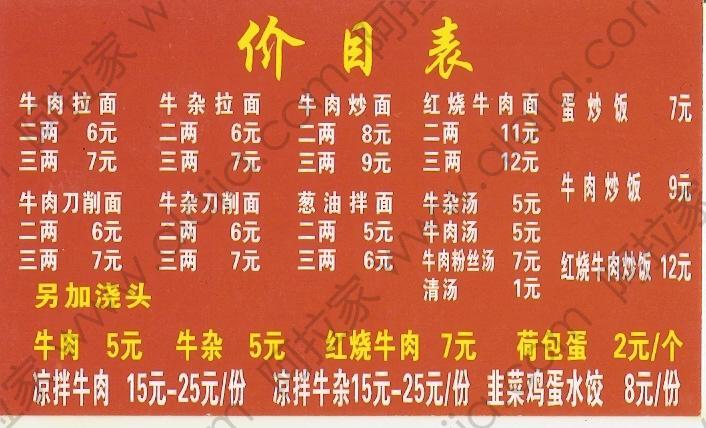 价目表
牛肉拉面 牛杂拉面 牛肉炒面 红烧牛肉面 蛋炒饭 7元
二两 6元 二两 6元 二两 8元 二两 11元
三两 7元 三两 7元 三两 9元 三两 12元
牛肉炒饭 9元
牛肉刀削面 牛杂刀削面 葱油拌面 牛杂汤 5元
二两 6元 二两 6元 二两 5元 牛肉汤 5元
三两 7元 三两 7元 三两 6元 牛肉粉丝汤 7元 红烧牛肉炒饭 12元
清汤 1元
另加浇头
牛肉 5元 牛杂 5元 红烧牛肉 7元 荷包蛋 2元/个
凉拌牛肉 15元-25元/份 凉拌牛杂15元-25元/份 韭菜鸡蛋水饺 8元/份
阿拉家 www.alajia.com